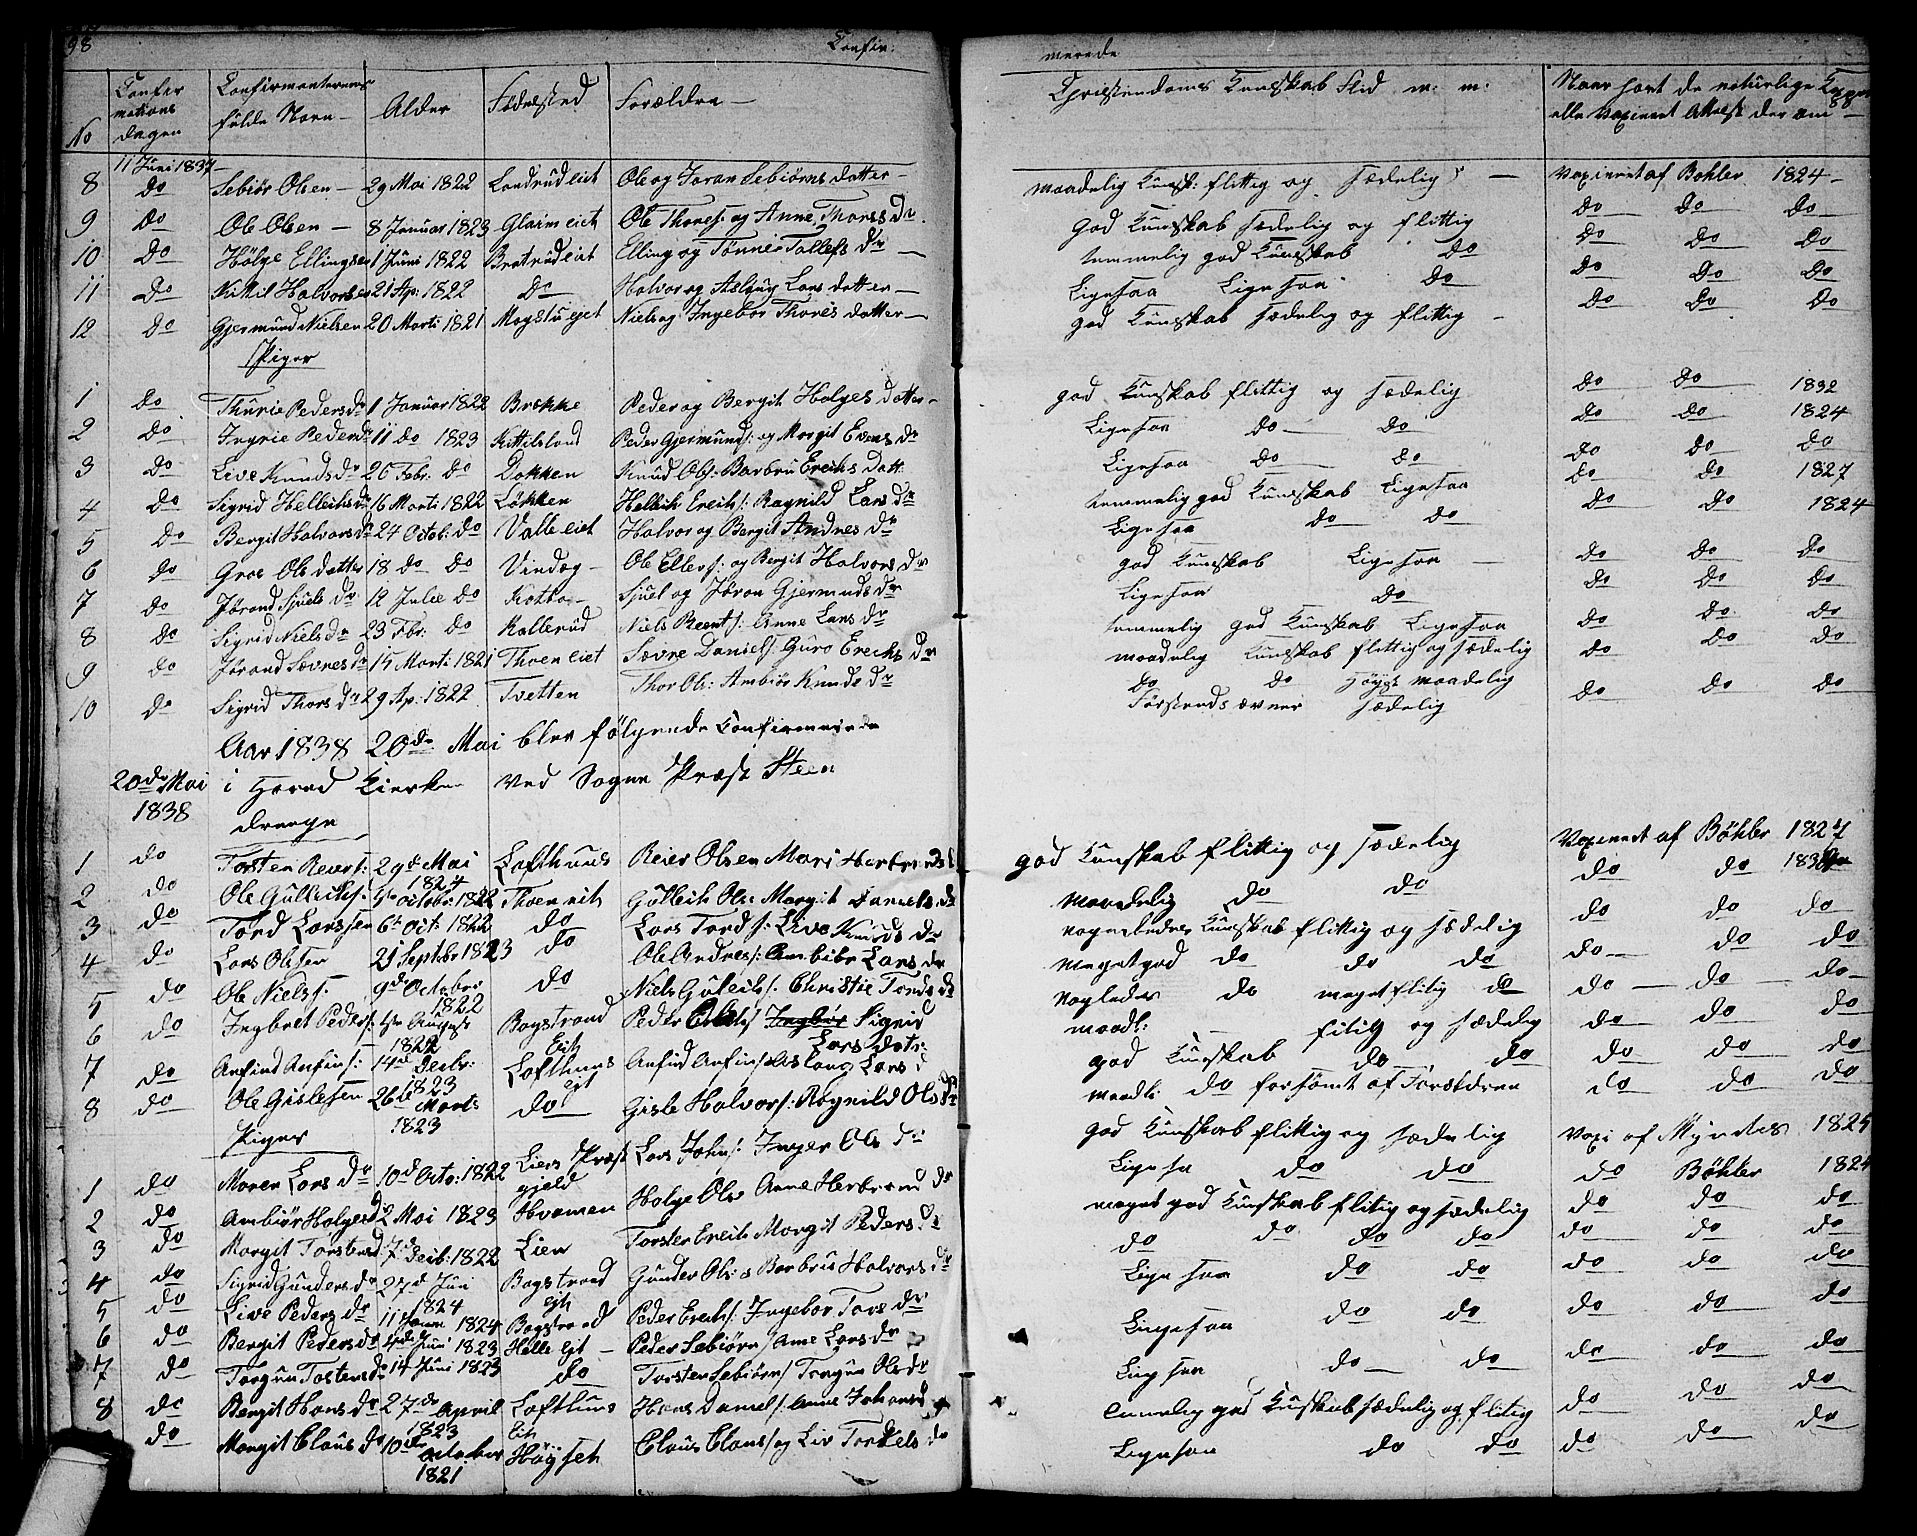 98 Confir: merede
No Confirmations dagen Confirmanternes fulde Navn Alder Fødested Forældre Christendoms Kundskab Flid m: m: Naar havt de naturlige
eller Vaxineret Attest der om
11 Juni 1837
8 do Sebiør Olsen 29 Mai 1822 Londrud eiet Ole og Joran Sebiørns datter maadelig Kunsk: flittig og sædelig Vaxineret af Bohler 1824
9 do Ole Olsen 8 Januar 1823 Glaim eiet Ole Thores: og Anne Thores Dr god Kundskab sædelig og flittig do do do
10 do Hölge Ellingsen 1 Juni 1822 Bratrud eiet Elling og Tønner Tollefs dr temmelig god Kundskab do do do do
11 do Kittil Halvorsen 21 Ap: 1822 do Halvor og Aslaug Lars datter Ligesaa Ligesaa do do do do
12 do Gjermund Nielsen 20 Marti 1821 Mogstu ejet Niels og Ingebor Thores datter god Kundskab sædelig og flittig do do do
Piger
1 do Thurie Peders dr 1 Januar 1822 Brække Peder og Bergit Holges datter god Kundskab flittig og sædelig do do 1832
2 do Ingrie Peders dr 11 do 1823 Kittilsland Peder Gjermunds: og Margit Evens dr Ligesaa do do do do 1824
3 do Live Knuds dr 26 Febr: do Dokken Knud Ols: Barbru Erichs datt Ligesaa do do do do do
4 do Sigrid Hellechs dr 16 Marti 1822 Løkken Hellech Erichs: Ragnild Lars dr temmelig god Kundskab Ligesaa do do 1827
5 do Bergit Halvors dr 24 Octob: do Valle eiet Halvor og Bergit Andres dr Ligesaa do do do do 1824
6 do Groe Ole datter 18 do do Vindeg Ole Ellefs: og Bergit Halvors dr god Kundskab Ligesaa do do do
7 do Jørand Sjuls dr 12 Julie do Kotte Sjul og Jøron Gjermunds dr Ligesaa do do do do
8 do Sigrid Niels dr 23 Fbr: do Kallerud Niels Reents: Anne Lars dr temmelig god Kundskab Ligesaa do do do
9 do Jørand Sævres dr 15 Marti 1821 Thoen eiet Sævre Daniels: Guro Erichs dr maadelig Kundskab flittig og sædelig do do do
10 do Sigrid Thors dr 29 Ap: 1822 Tvetten Thor Ols: Ambiør Knuds dr do do Høyst maadelig
Forstands ævner sædelig do do do
Aar 1838 20de Mai blev følgende Confirmerede
20de Mai 1838 i Hoved Kierken ved Sogne Præst Steen
Drenge
1 do Torsten Reiers: 29d Mai 1824 Lofthuus Reier Olsen Mari Herbrands god Kundskab flittig og sædelig Vaxineret af Bøhler 1827
2 do Ole Gulleichs: 4de octobr: 1822 Thoen eit Gulleik Ols: Margit Daniels dr maadelig do do do do
3 do Tord Larssen 6te oct: 1822 do Lars Tords: Live Knuds dr Kundskab flittig og sædelig do do do
4 do Lars Olsen 21 Septbr 1823 do Ole Andres: Ambiør Lars dr meget god do do do do do do
5 do Ole Niels: 9d October 1822 do Niels Guleichs: Christie Tords dr do meget flitig do do do do
6 do Ingbret Peders: August 1822 Bagstrand Eih Peder Sigrid Lars datr: maadl: flitig og sædelig do do do
7 do Anfind Anfins: 14de Decbr: 1823 Lofthuus ejt Anfind Anfins: Aslaug Lars d god Kundskab do do do do do
8 do Ole Gislesen 26de Marts 1823 do Gisle Halvors: Rognild Ols dr maadl: do forsømt af Forældrene do do do
Piger
1 do Maren Lars dr 10d Octo: 1822 Liers Præst gjeld Lars Johns: Inger Ols dr god Kundskab flittig og sædelig Vaxi af Myndes 1825
2 do Ambiør Holges d 2 Mai 1823 Hvamen Holge Ols Anne Herbrand dr Ligesa do do do Bøhler 1824
3 do Margit Torstens d 7de Decb: 1822 Lien Torsten Erichs Margit Peders dr meget god Kundskab flitig og sædelig do do do
4 do Sigrid Gunders dr 27d Juni 1824 Bagstrand eih Gunder Ols: Barbru Halvors dr do do do do do do do
5 do Live Peders dr 11 Janu 1824 Bagstrand Peder Erichs: Ingebor Tors dr Ligesaa do do do do do
6 do Bergit Peders dr 4de Juni 1823 Hølle ejt Peder Sebiørn: Ane Lars dr Ligesaa do do do do do
7 do Torgun Tostens dr 14 Juni 1823 do Torsten Sebiørn: Torgun Ols dr Ligsaa do do do do do
8 do Bergit Hans dr 27de April 1823 Lofthuus Eih Hans Daniels: Anne Johans d god Kundskab sædelig og flitig do do do
do Margit Claus dr 10de october 1821 Høyset Claus Claus: og Liv Torkels do Ligesaa do do do do do